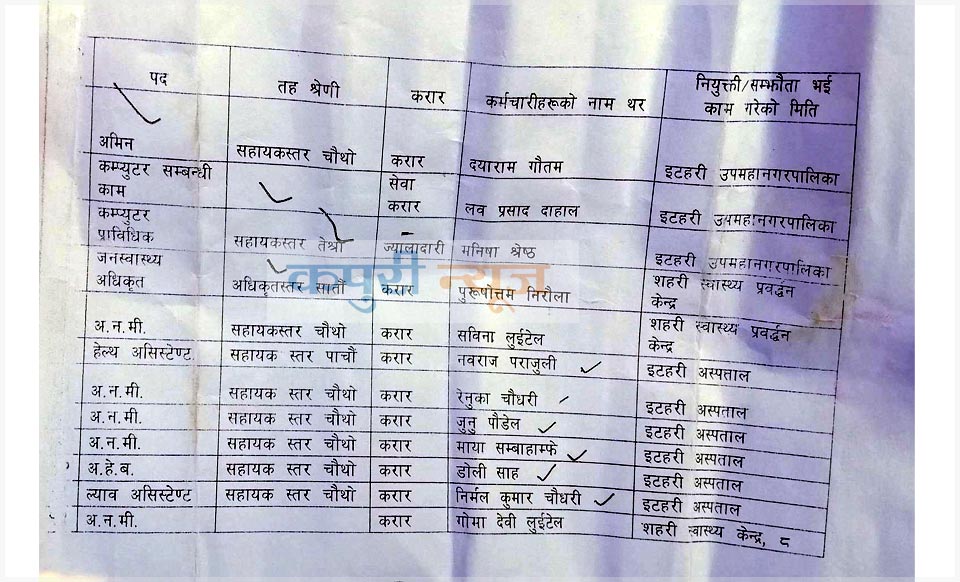 पद तह श्रेणी करार कर्मचारीहरूको नाम थर नियुक्ती/सम्झौता भई
काम गरेको मिति
अमिन सहायकस्तर चौथो करार दयाराम गौतम इटहरी उपमहानगरपालिका
कम्प्युटर सम्बन्धी सेवा
काम करार लव प्रसाद दाहाल इटहरी उपमहानगरपालिका
कम्प्युटर
प्राविधिक सहायकस्तर तेश्रो ज्यालादारी मनिषा श्रेष्ठ इटहरी उपमहानगरपालिका
जनस्वास्थ्य शहरी स्वास्थ्य प्रवर्द्धन
अधिकृत अधिकृतस्तर सातौं करार पुरूषोत्तम निरौला केन्द्र
कपुरी न्यूज
शहरी स्वास्थ्य प्रवर्द्धन
अ.न.मी. सहायकस्तर चौथो करार सविना लुईटेल केन्द्र
हेल्थ असिस्टेण्ट. सहायक स्तर पाचौं करार नवराज पराजुली इटहरी अस्पताल
अ.न.मी. सहायक स्तर चौथो करार रेनुका चौधरी इटहरी अस्पताल
अ.न.मी. सहायक स्तर चौथो करार जुनु पौडेल इटहरी अस्पताल
अ.न.मी. सहायक स्तर चौथो करार माया सम्बाहाम्फे इटहरी अस्पताल
अ.हे.ब. सहायक स्तर चौथो करार डोली साह इटहरी अस्पताल
ल्याव असिस्टेण्ट सहायक स्तर चौथो करार निर्मल कुमार चौधरी इटहरी अस्पताल
अ.न.मी. करार गोमा देवी लुईटेल शहरी स्वास्थ्य केन्द्र, ८